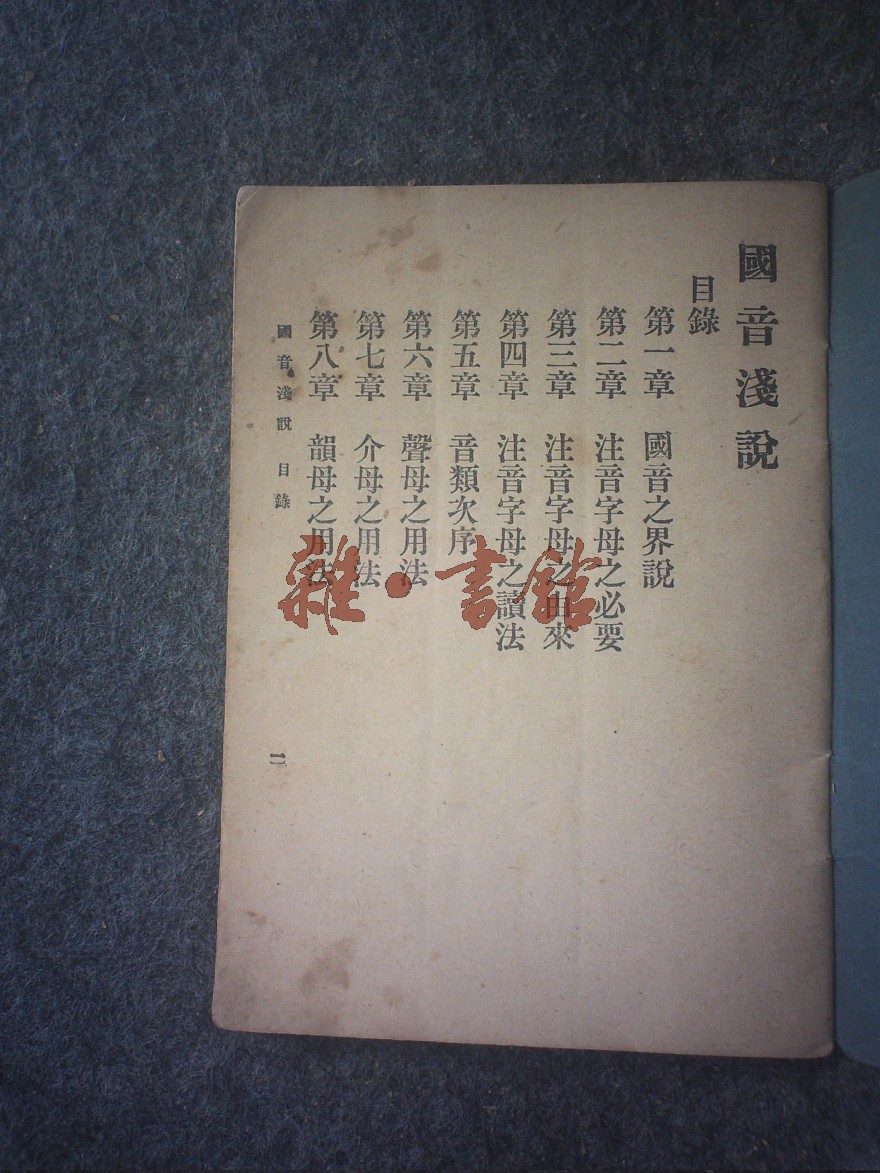 國音淺說
目錄
第一章 國音之界說
第二章 注音字母之必要
第三章 注音字母之由來
第四章 注音字母之讀法
第五章 音類次序
第六章 聲母之用法
第七章 介母之用法
第八章 韻母之用法
國音淺說 目錄
雜·書館